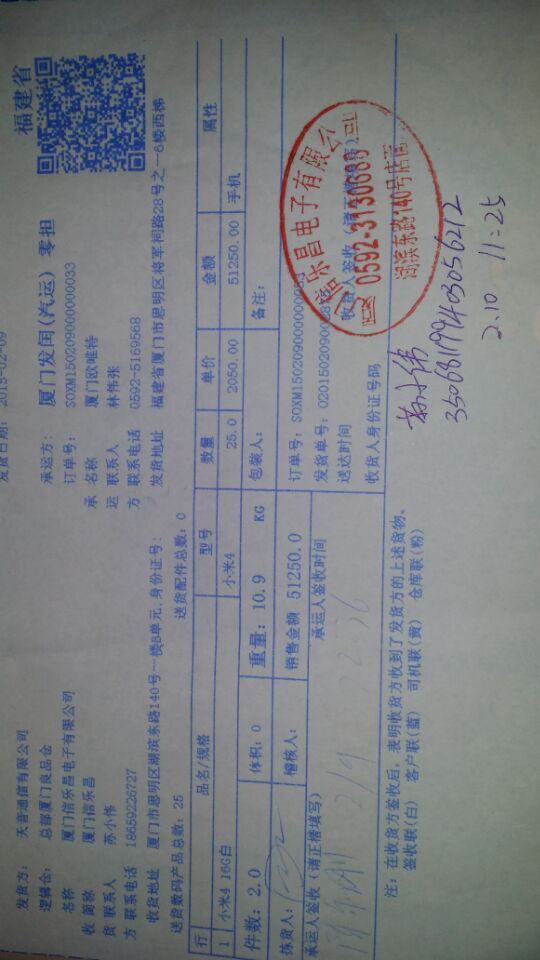 发货日期: 2015-02-09
福建省
发货方: 天音通信有限公司
承运方: 厦门发闰(汽运) 零担
逻辑仓: 总部厦门良品仓
订单号: SOXM150209000000033
收货方
名称 厦门信乐昌电子有限公司
简称 厦门信乐昌
联系人 苏小伟
联系电话 18659226727
收货地址 厦门市思明区湖滨东路140号一楼B单元,身份证号:
承运方
名称 厦门欧唯特
联系人 林伟张
联系电话 0592-5169568
发货地址 福建省厦门市思明区将军祠路28号之一6楼西梯
送货数码产品总数: 25 送货配件总数: 0
行 品名/规格 型号 数量 单价 金额 属性
1 小米4 16G白 小米4 25.0 2050.00 51250.00 手机
件数: 2.0 体积: 0 重量: 10.9 KG 包装人: 备注:
拣货人: 稽核人: 销售金额 51250.0
订单号: SOXM150209000000033
承运人签收(请正楷填写) 承运人签收时间
发货单号:
送达时间
收货人签收
收货人身份证号码
2/9
乐昌电子有限公司
0592-3130683
湖滨东路140号店面
苏小伟
350681199403056212
2.10 11:25
注: 在收货方签收后, 表明收货方收到了发货方的上述货物。
签收联(白) 客户联(蓝) 司机联(黄) 仓库联(粉)